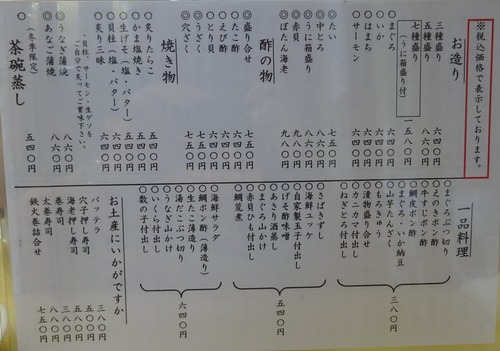 ※税込価格で表示しております。
お造り
三種盛り 六四〇円
五種盛り 八六〇円
七種盛り（うに箱盛り付） 一五八〇円
○まぐろ 六四〇円
○いか 六四〇円
○はまち 六四〇円
○サーモン 六四〇円
○たい 七五〇円
◎中とろ 八六〇円
◎うに箱盛り 九八〇円
◎赤貝
◎ぼたん海老 九八〇円
酢の物
◎盛り合せ 七五〇円
○たこ酢 六四〇円
○えび酢 六四〇円
○とり貝 六四〇円
◎うざく 七五〇円
◎穴ざく 七五〇円
焼き物
○炙りたらこ 五四〇円
○かま塩焼き 五四〇円
○生げそ（塩・バター） 五四〇円
○貝柱（塩・バター） 六四〇円
○炙り三昧 六四〇円
貝柱、サーモン・生ゲソを
ご自分で炙ってご賞味下さい。
◎うなぎ蒲焼 八六〇円
◎あなご蒲焼 八六〇円
茶碗蒸し
（冬季限定） 五四〇円
一品料理
まぐろぶつ切り
えのきポン酢
牛すじポン酢
鯛皮ポン酢
まぐろ・いか納豆
山芋たんざく
もろきゅう
漬物盛り合せ
カニカマ付出し
ねぎとろ付出し
三八〇円
さばきずし
海鮮ユッケ
自家製玉子付出し
げそ酢味噌
あさり酒蒸し
まぐろ山かけ
赤貝ひも付出し
鯛荒煮
五四〇円
海鮮サラダ
鯛ポン酢（薄造り）
生たこ薄造り
湯だこぶつ切り
うなぎ山かけ
いくら付出し
数の子付出し
六四〇円
お土産にいかがですか
バッテラ 三八〇円
穴子押し寿司 五四〇円
海老押し寿司
巻寿司
太巻寿司 八八〇円
鉄火巻詰合せ 七五〇円